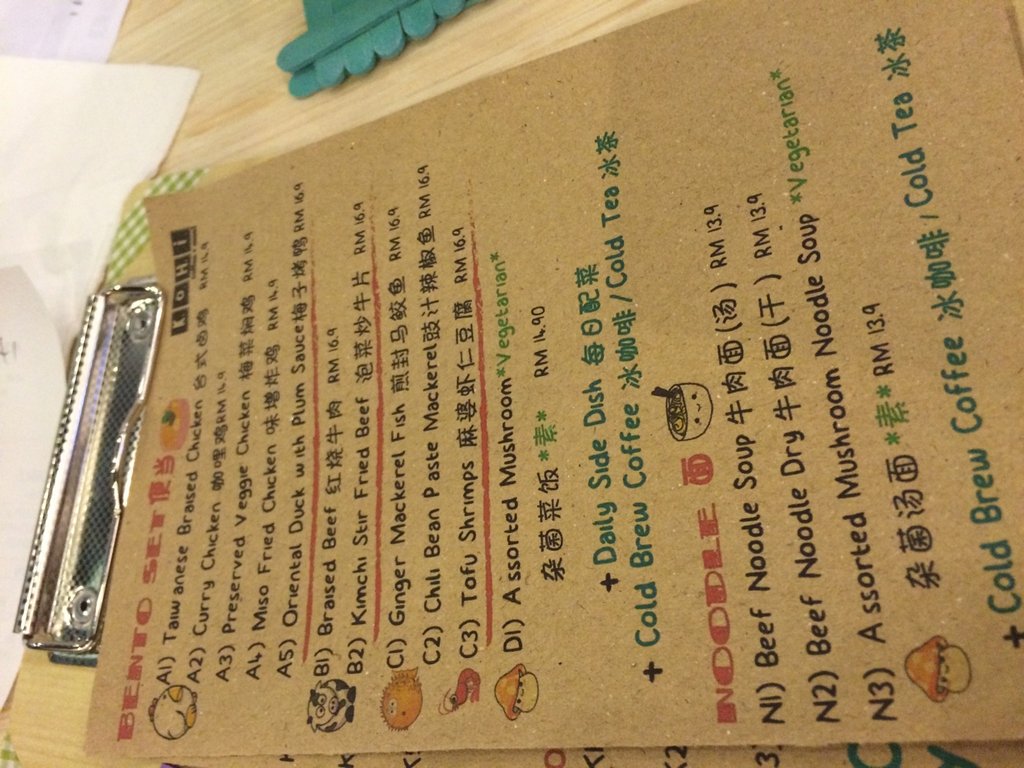 LOHI
BENTO SET 便当
A1) Taiwanese Braised Chicken 台式卤鸡 RM 14.9
A2) Curry Chicken 咖哩鸡 RM 14.9
A3) Preserved Veggie Chicken 梅菜焗鸡 RM 14.9
A4) Miso Fried Chicken 味增炸鸡 RM 14.9
A5) Oriental Duck with Plum Sauce梅子烤鸭 RM 16.9
B1) Braised Beef 红烧牛肉 RM 16.9
B2) Kimchi Stir Fried Beef 泡菜炒牛片 RM 16.9
C1) Ginger Mackerel Fish 煎封马鲛鱼 RM 16.9
C2) Chili Bean Paste Mackerel豉汁辣椒鱼 RM 16.9
C3) Tofu Shrimps 麻婆虾仁豆腐 RM 16.9
D1) Assorted Mushroom*Vegetarian*
杂菌菜饭 *素* RM 14.90
+ Daily Side Dish 每日配菜
+ Cold Brew Coffee 冰咖啡/Cold Tea 冰茶
NOODLE 面
N1) Beef Noodle Soup 牛肉面(汤) RM 13.9
N2) Beef Noodle Dry 牛肉面(干) RM 13.9
N3) Assorted Mushroom Noodle Soup *Vegetarian*
杂菌汤面 *素* RM 13.9
+ Cold Brew Coffee 冰咖啡/Cold Tea 冰茶